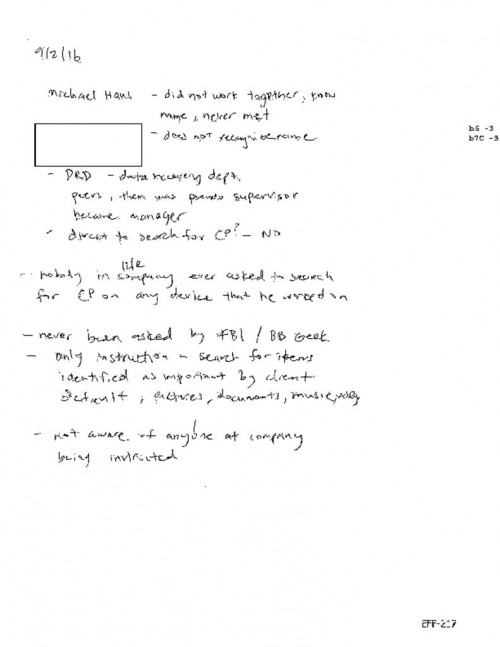 9/2/16
Michael Hans - did not work together, know
name, never met
- does not recognize name
b6 -3
b7C -3
- DRD - data recovery dept.
peers, then was pseudo supervisor
became manager
- direct to search for CP? - NO
life
- nobody in company ever asked to search
for CP on any device that he worked on
- never been asked by FBI / BB Geek
- only instruction - search for items
identified as important by client
default, pictures, documents, music,
- not aware of anyone at company
being instructed
EFF-217